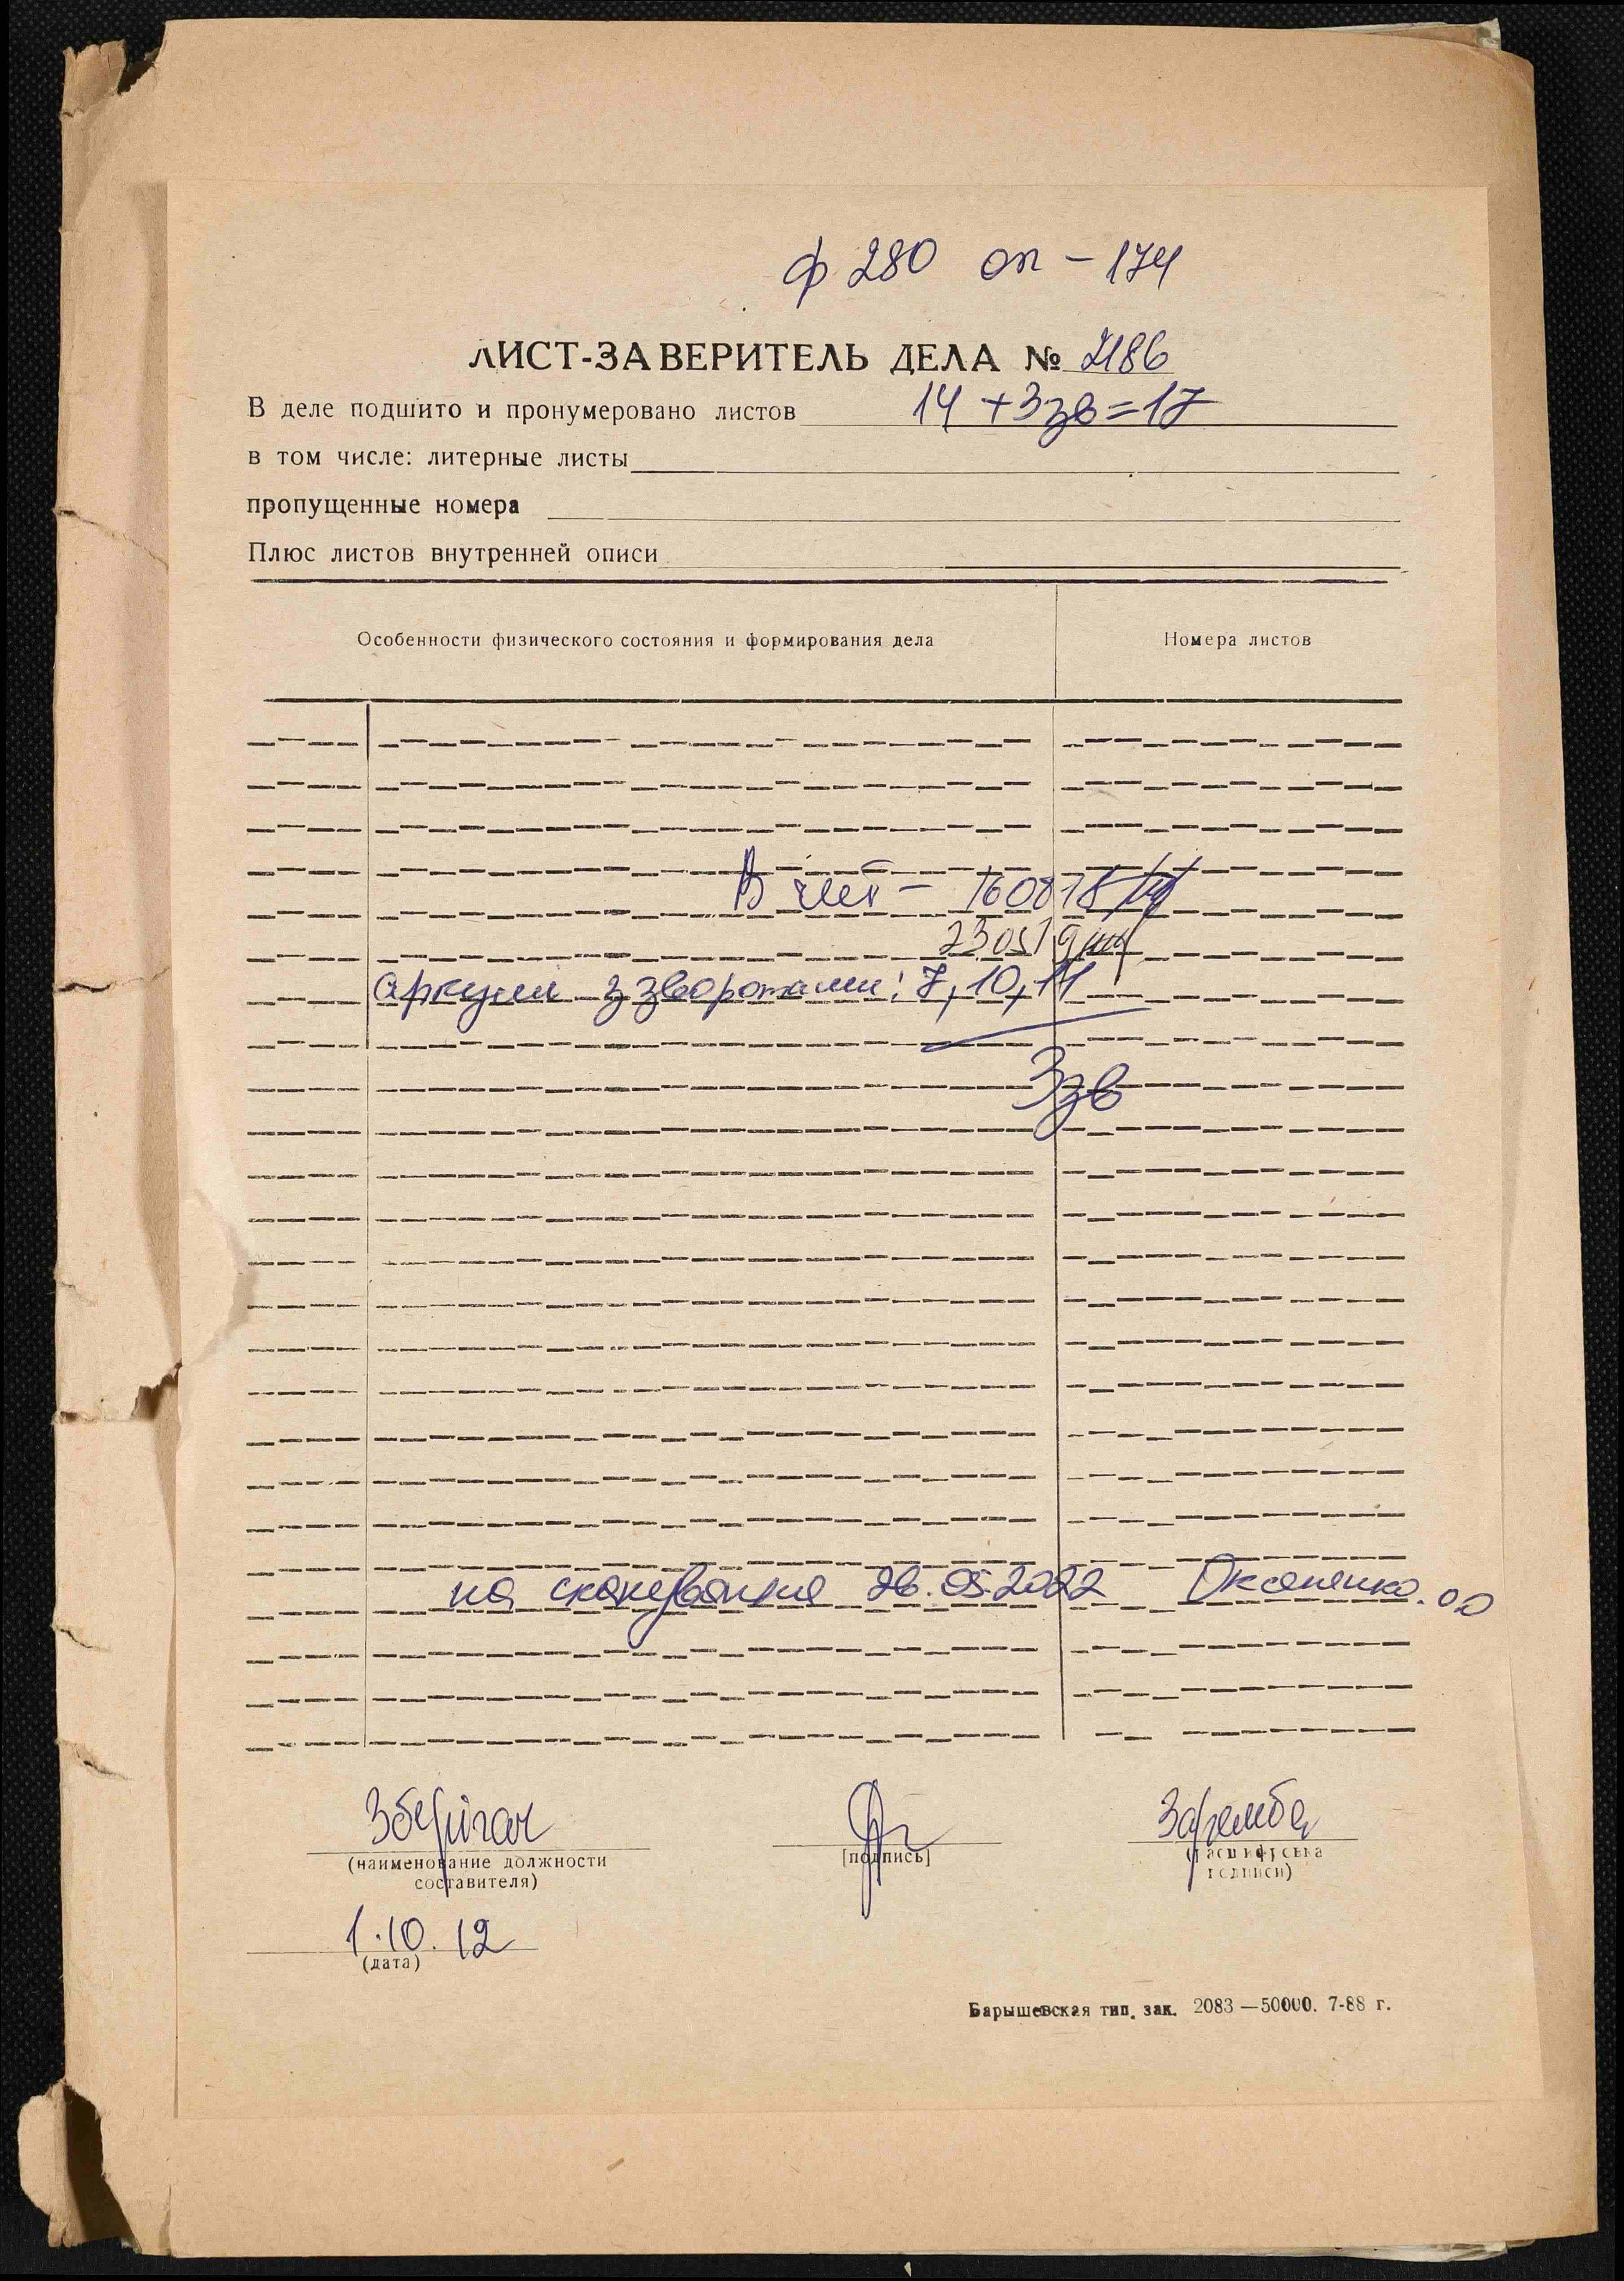 ф 280 оп – 174
ЛИСТ-ЗАВЕРИТЕЛЬ ДЕЛА № 2186
В деле подшито и пронумеровано листов 14 + 3 зв = 17
в том числе: литерные листы
пропущенные номера
Плюс листов внутренней описи
Особенности физического состояния и формирования дела Номера листов
В чит –
аркуши з зворотами: 7, 10, 14
3 зв
на сканування 26.05.2022
Зберігач Заремба
(наименование должности составителя) [подпись] (расшифровка подписи)
1.10.12
(дата)
Барышевская тип. зак. 2083 — 50000. 7-88 г.